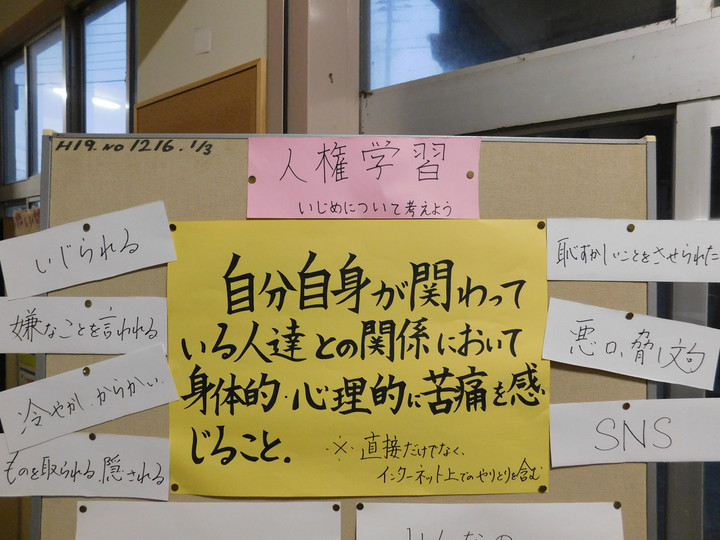 H19. NO 1216. 1/3
人権学習
いじめについて考えよう
いじられる
嫌なことを言われる
冷やかし、からかい
ものを取られる、隠される
自分自身が関わって
いる人達との関係において
身体的・心理的に苦痛を感
じること.
※直接だけでなく、
インターネット上でのやりとりを含む
恥ずかしいことをさせられた
悪口、脅し文句
SNS
みんなの